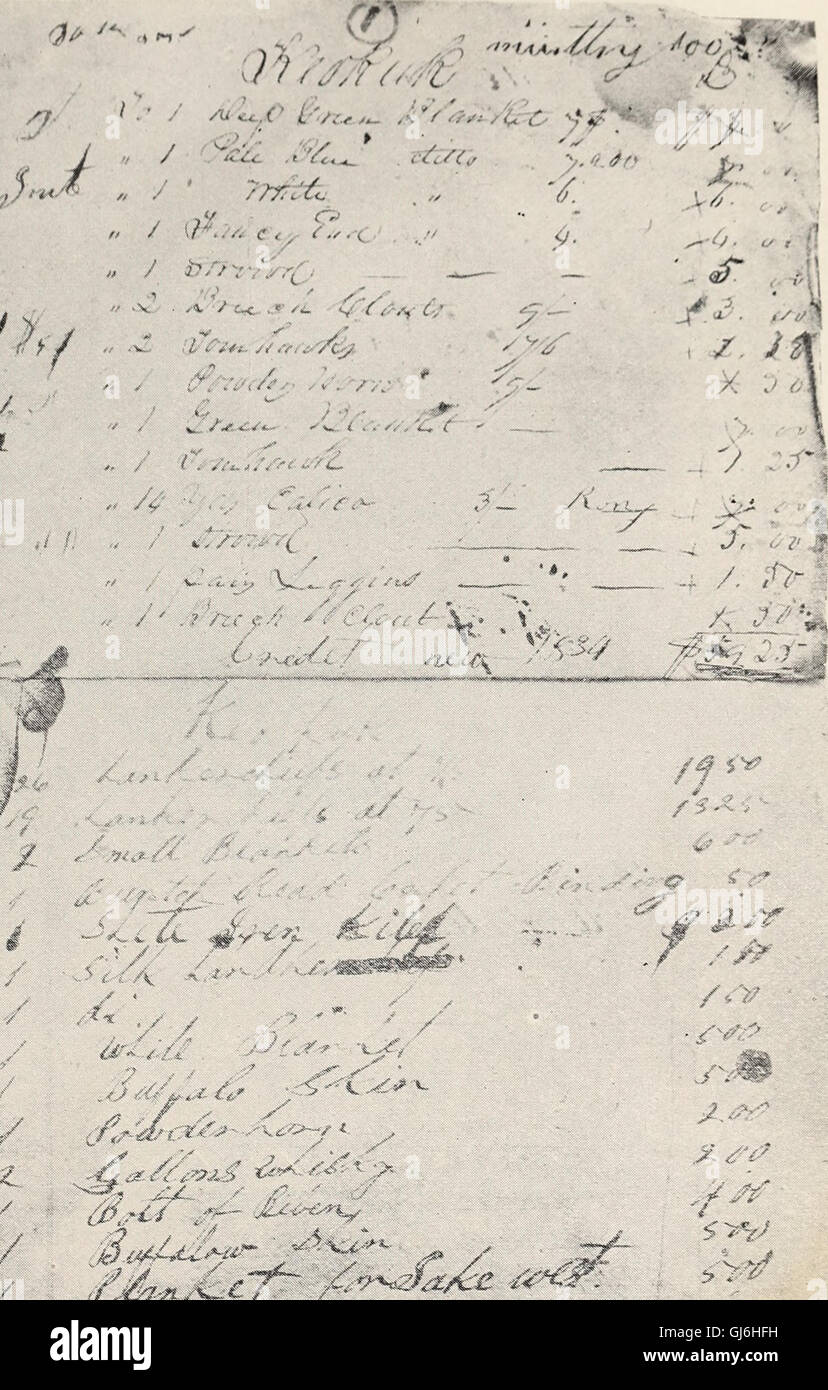 1
Keokuk
To 1 Deep Green Blanket
" 1 Pale Blue ditto
" 1 White " 6. 6. 00
" 1 Fancy End " 4. 4. 00
" 1 Strowd 5. 00
" 2 Breech Clouts 3. 00
" 2 Tomhawks 17/6
" 1 Powder Horn 50
" 1 Green Blanket 7. 00
" 1 Tomhawk 1. 25
" 14 Yds Calico 3/ 7. 00
" 1 Strowd 5. 00
" 1 pair Leggins 1. 50
" 1 Breech Clout 50
Credit 1834 $59 25
Keokuk
26 hankerchiefs at 19 50
19 hankerchiefs at 75 13 25
2 Small Blankets 6 00
1 Binding 50
2 00
1 Silk 1 50
1 do 1 50
1 White Blanket 5 00
1 Buffalo Skin 5 00
1 Powderhorn 2 00
2 Gallons Whisky 2 00
1 Bolt of 4 00
1 Buffalow Skin 5 00
Blanket for Sake west. 5 00
alamy
GJ6HFH
www.alamy.com